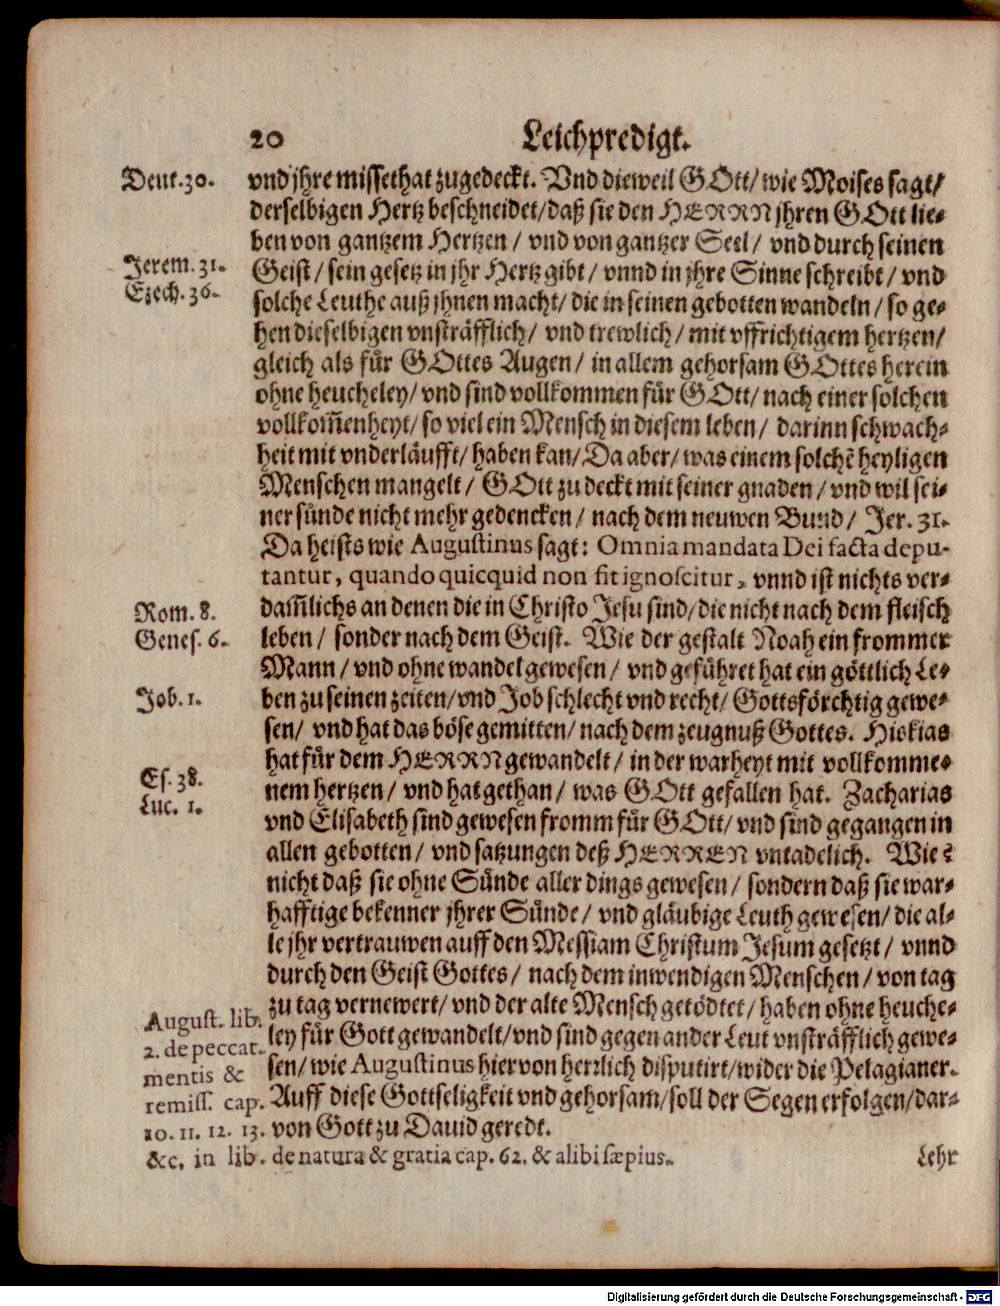 20 Leichpredigt.
Deut. 30. vnd jhre missethat zugedeckt. Vnd dieweil GOtt/ wie Moises sagt/
derselbigen Hertz beschneidet/ daß sie den HERRN jhren GOtt lie-
ben von gantzem Hertzen / vnd von gantzer Seel / vnd durch seinen
Jerem. 31. Geist / sein gesetz in jhr Hertz gibt / vnnd in jhre Sinne schreibt / vnd
Ezech. 36. solche Leuthe auß jhnen macht/ die in seinen gebotten wandeln/ so ge-
hen dieselbigen vnsträfflich/ vnd trewlich / mit vffrichtigem hertzen/
gleich als für GOttes Augen / in allem gehorsam GOttes herein
ohne heucheley/ vnd sind vollkommen für GOtt/ nach einer solchen
vollkom̃enheyt/ so viel ein Mensch in diesem leben / darinn schwach-
heit mit vnderläufft/ haben kan/ Da aber/ was einem solchẽ heyligen
Menschen mangelt / GOtt zu deckt mit seiner gnaden / vnd wil sei-
ner sünde nicht mehr gedencken / nach dem neuwen Bund / Jer. 31.
Da heists wie Augustinus sagt: Omnia mandata Dei facta depu-
tantur, quando quicquid non fit ignoscitur, vnnd ist nichts ver-
Rom. 8. dam̃lichs an denen die in Christo Jesu sind/ die nicht nach dem fleisch
Genes. 6. leben / sonder nach dem Geist. Wie der gestalt Noah ein frommer
Mann / vnd ohne wandel gewesen / vnd geführet hat ein göttlich Le-
Job. 1. ben zu seinen zeiten/ vnd Job schlecht vnd recht/ Gottsförchtig gewe-
sen/ vnd hat das böse gemitten/ nach dem zeugnuß Gottes. Hiskias
hat für dem HERRN gewandelt / in der warheyt mit vollkomme-
Es. 38. nem hertzen / vnd hat gethan / was GOtt gefallen hat. Zacharias
Luc. 1. vnd Elisabeth sind gewesen fromm für GOtt/ vnd sind gegangen in
allen gebotten / vnd satzungen deß HERREN vntadelich. Wie?
nicht daß sie ohne Sünde aller dings gewesen / sondern daß sie war-
hafftige bekenner jhrer Sünde / vnd gläubige Leuth gewesen/ die al-
le jhr vertrauwen auff den Messiam Christum Jesum gesetzt / vnnd
durch den Geist Gottes / nach dem inwendigen Menschen / von tag
August. lib. zu tag vernewert/ vnd der alte Mensch getödtet / haben ohne heuche-
2. de peccat. ley für Gott gewandelt/ vnd sind gegen ander Leut vnsträfflich gewe-
mentis & sen/ wie Augustinus hiervon herrlich disputirt/ wider die Pelagianer.
remiss. cap. Auff diese Gottseligkeit vnd gehorsam/ soll der Segen erfolgen/ dar-
10. 11. 12. 13. von Gott zu Dauid geredt.
&c. in lib. de natura & gratia cap. 62. & alibi sæpius. Lehr
Digitalisierung gefördert durch die Deutsche Forschungsgemeinschaft - DFG